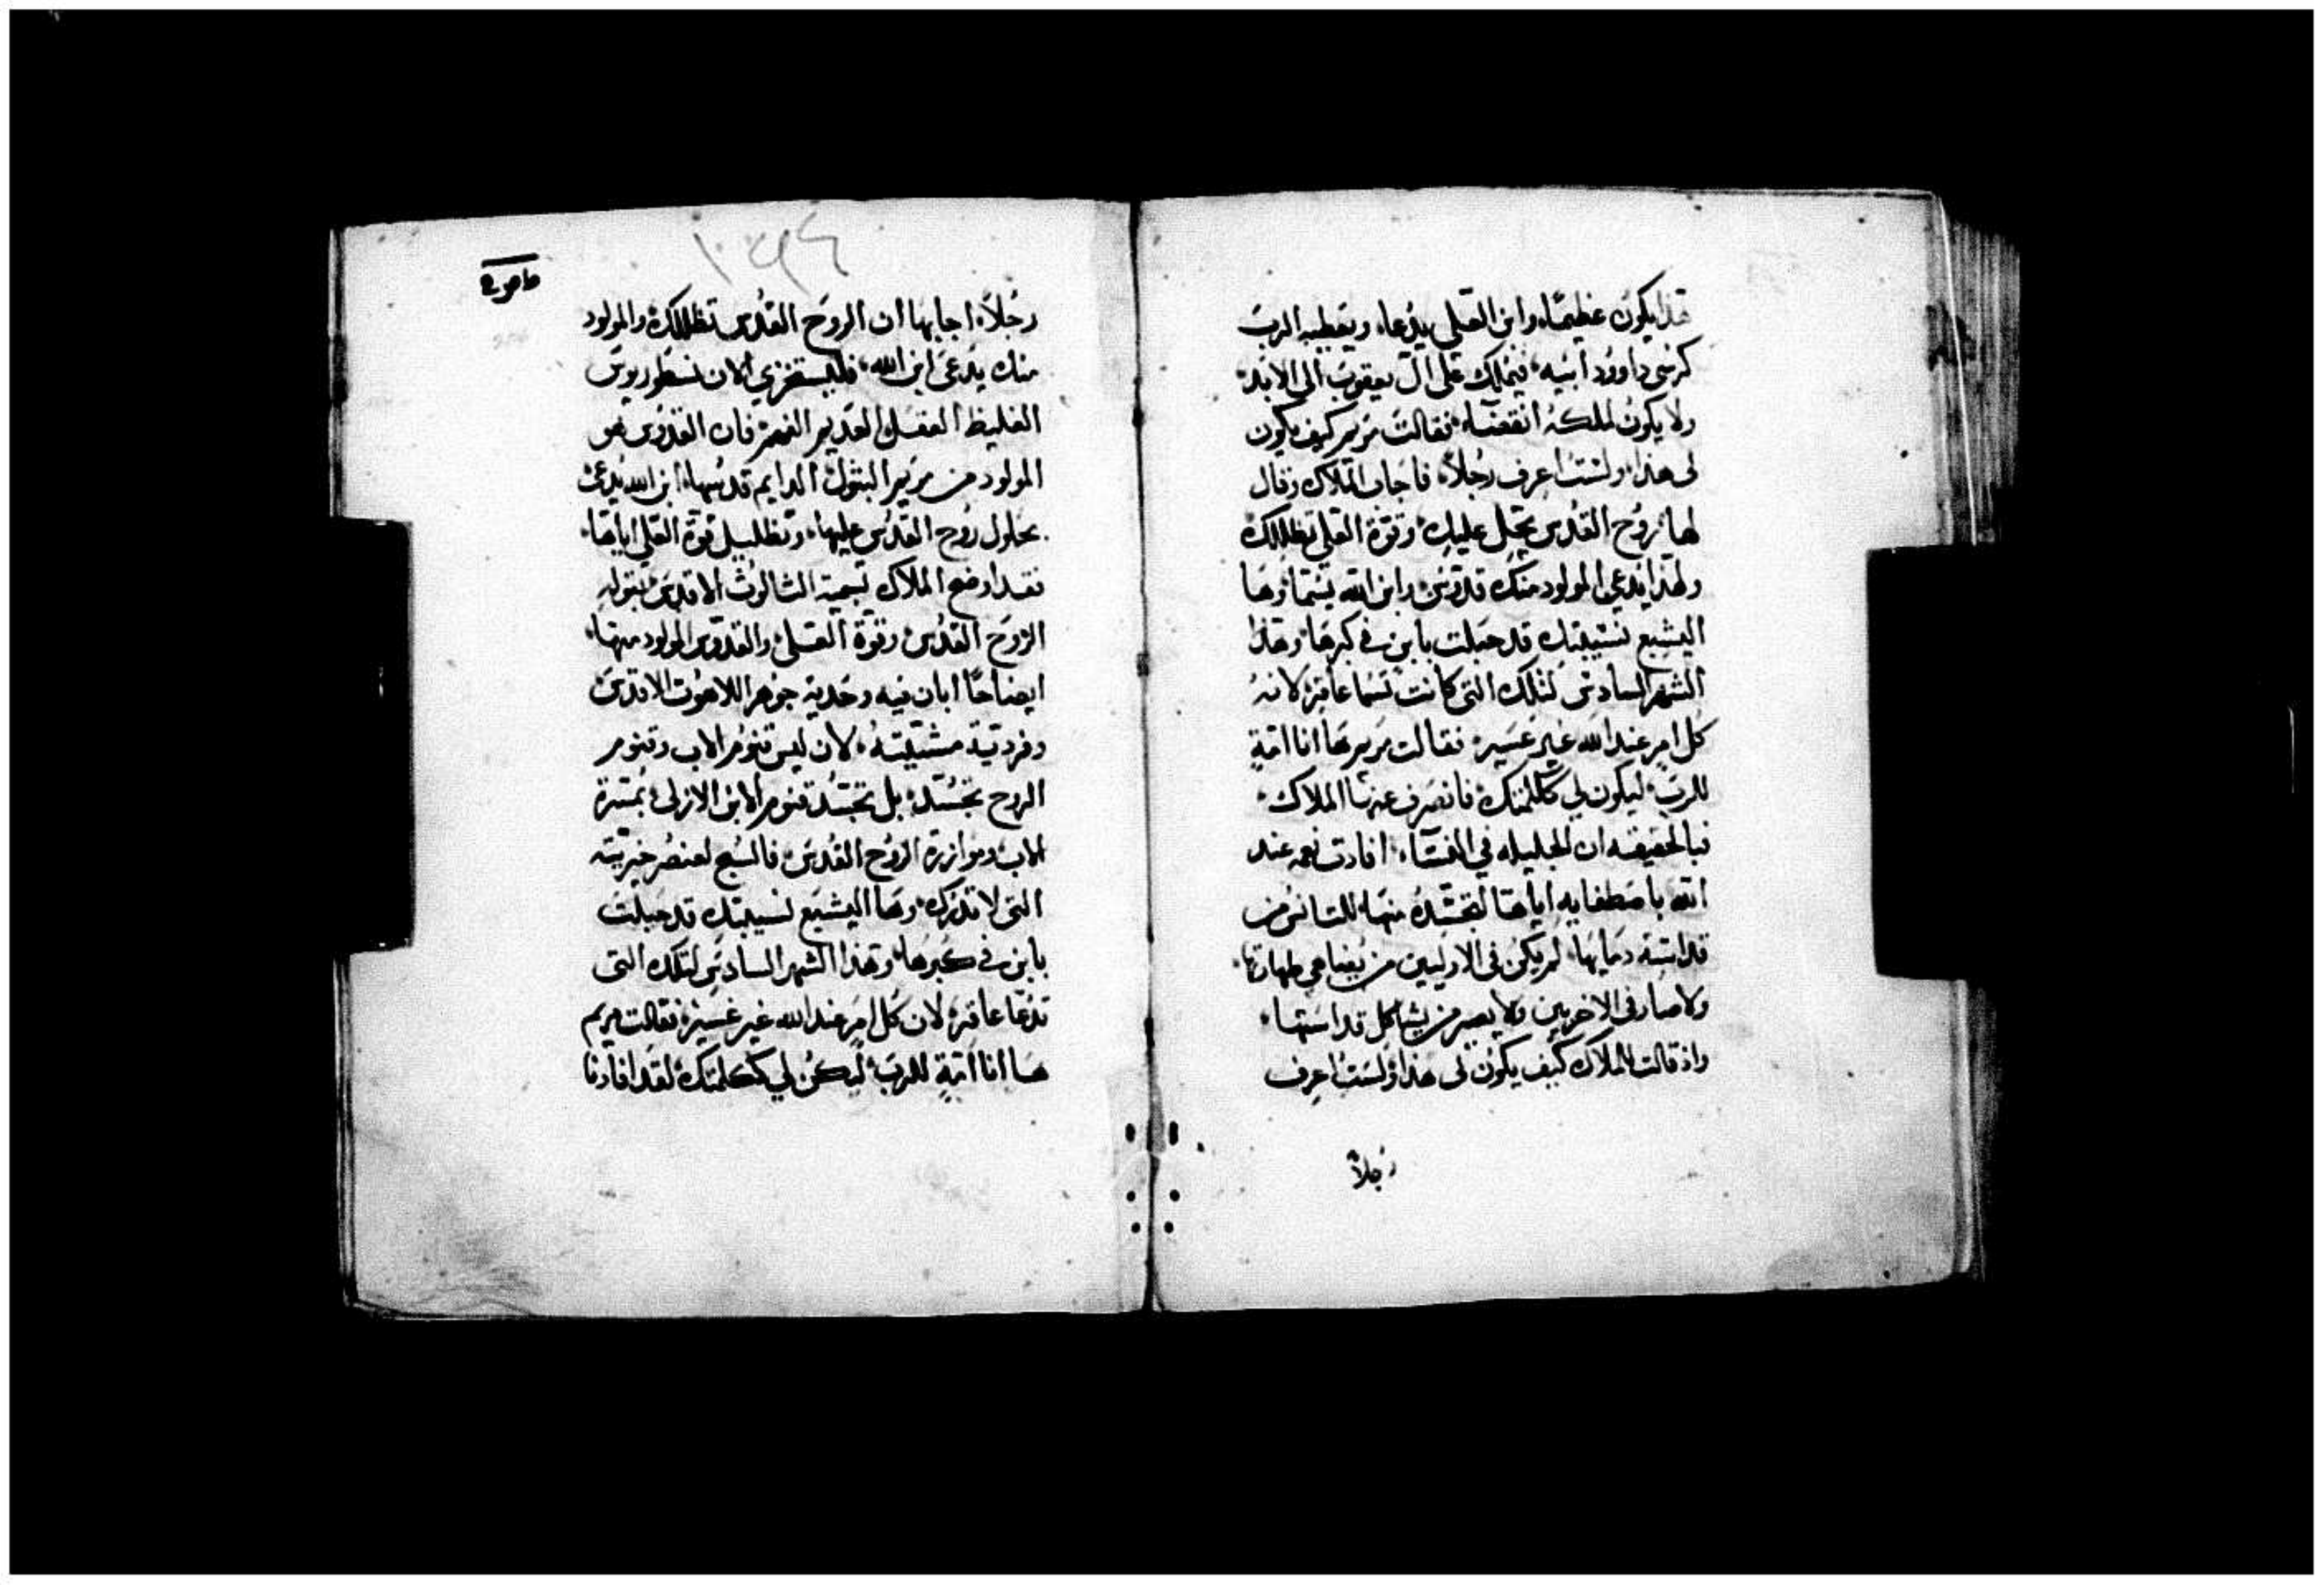 هذا يكون عظيمًا، وابن العلي يدعا، ويعطيه الرب
كرسي داوود ابيه، فيملك على ال يعقوب الى الابد
ولا يكون لملكه انقضاء، فقالت مريم كيف يكون
لي هذا، ولست اعرف رجلاً، فاجاب الملاك وقال
لها، روح القدس تحل عليك، وقوة العلي تظللك
ولهذا يدعي المولود منك قدوس وابن الله يسما وها
اليشبع نسيبتك قد حبلت بابن في كبرها، وهذا
الشهر السادس لتلك التي كانت تسما عاقره لانه
كل امر عند الله غير عسير، فقالت مريم ها انا امة
للرب، ليكون لي ككلمتك، فانصرف عنها الملاك،
فبالحقيقه ان الجليله في النساء، افادت نعمه عند
الله باصطفايه اياها لتجسده منها للتانس من
قداسة دمايها، لم يكن في الاوليين من يضاهي طهارتها،
ولا صار في الاخريين ولا يصير من يشاكل قداستها،
واذ قالت للملاك كيف يكون لي هذا ولست اعرف
رجلاً
رجلاً، اجابها ان الروح القدس تظللك، والمولود
منك يدعى ابن الله، فليستخزي الان نسطوريوس
الغليظ العقل العديم الفهم، فان القدوس هو
المولود من مريم البتول الدايم قدسها، ابن الله يدعى
بحلول روح القدس عليها، وتظليل قوة العلي اياها،
فقد اوضح الملاك تسمية الثالوث الاقدس بقوله
الروح القدس وقوة العلي، والقدوس المولود منها،
ايضاحًا ابان فيه وحدية جوهر اللاهوت الاقدس
وفردية مشيته، لان ليس قنوم الاب وقنوم
الروح تجسد، بل تجسد قنوم الابن الازلي، بمسرة
الاب وموازرة الروح القدس، فالسبح لعنصر خيريته
التي لا تدرك، وها اليشبع نسيبتك قد حبلت
بابن في كبرها، وهذا الشهر السادس لتلك التي
تدعا عاقره لان كل امر عند الله غير عسير، فقالت مريم
ها انا امة للرب، ليكن لي ككلمتك، لقد افادنا